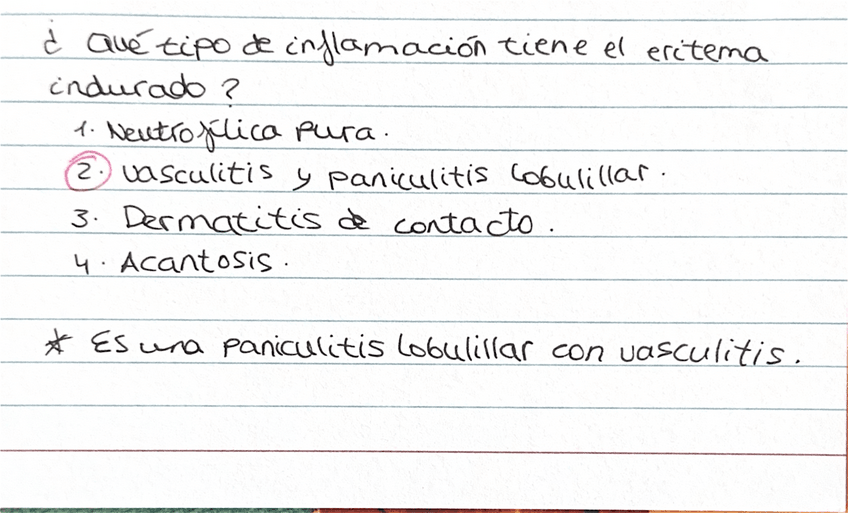 ¿ Qué tipo de inflamación tiene el eritema
indurado ?
1. Neutrofílica pura.
2. vasculitis y paniculitis lobulillar.
3. Dermatitis de contacto.
4. Acantosis.
* Es una paniculitis lobulillar con vasculitis.